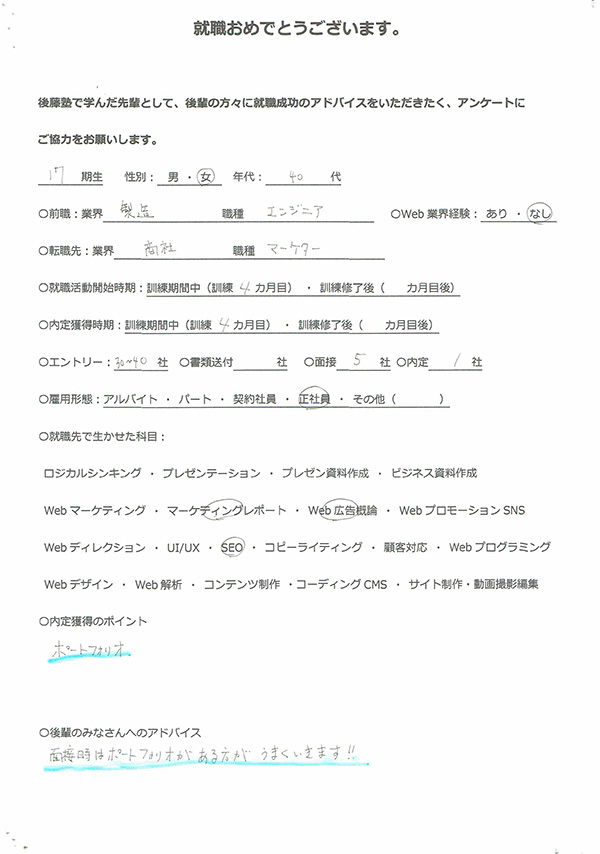 就職おめでとうございます。
後藤塾で学んだ先輩として、後輩の方々に就職成功のアドバイスをいただきたく、アンケートに
ご協力をお願いします。
17 期生 性別：男 ・ 女 年代： 40 代
○前職：業界 製造 職種 エンジニア ○Web 業界経験：あり ・ なし
○転職先：業界 商社 職種 マーケター
○就職活動開始時期：訓練期間中（訓練 4 カ月目） ・ 訓練修了後（ カ月目後）
○内定獲得時期：訓練期間中（訓練 4 カ月目） ・ 訓練修了後（ カ月目後）
○エントリー：30~40 社 ○書類送付 社 ○面接 5 社 ○内定 1 社
○雇用形態：アルバイト ・ パート ・ 契約社員 ・ 正社員 ・ その他（ ）
○就職先で生かせた科目：
ロジカルシンキング ・ プレゼンテーション ・ プレゼン資料作成 ・ ビジネス資料作成
Web マーケティング ・ マーケティングレポート ・ Web 広告概論 ・ Web プロモーション SNS
Web ディレクション ・ UI/UX ・ SEO ・ コピーライティング ・ 顧客対応 ・ Web プログラミング
Web デザイン ・ Web 解析 ・ コンテンツ制作 ・コーディング CMS ・ サイト制作・動画撮影編集
○内定獲得のポイント
ポートフォリオ
○後輩のみなさんへのアドバイス
面接時はポートフォリオがある方が うまくいきます!!